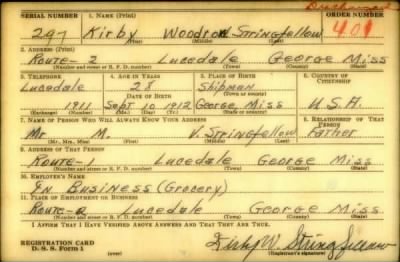 Discharged
SERIAL NUMBER 1. NAME (Print) ORDER NUMBER
297 Kirby Woodrow Stringfellow 401
(First) (Middle) (Last)
2. ADDRESS (Print)
Route-2 Lucedale George Miss
(Number and street or R. F. D. number) (Town) (County) (State)
3. TELEPHONE 4. AGE IN YEARS 5. PLACE OF BIRTH 6. COUNTRY OF CITIZENSHIP
Lucedale 28 Shipman
DATE OF BIRTH (Town or county)
1911 Sept 10 1912 George, Miss U.S.A.
(Exchange) (Number) (Mo.) (Day) (Yr.) (State or country)
7. NAME OF PERSON WHO WILL ALWAYS KNOW YOUR ADDRESS 8. RELATIONSHIP OF THAT PERSON
Mr M. V. Stringfellow Father
(Mr., Mrs., Miss) (First) (Middle) (Last)
9. ADDRESS OF THAT PERSON
Route-1 Lucedale George Miss
(Number and street or R. F. D. number) (Town) (County) (State)
10. EMPLOYER'S NAME
In Business (Grocery)
11. PLACE OF EMPLOYMENT OR BUSINESS
Route-2 Lucedale George Miss
(Number and street or R. F. D. number) (Town) (County) (State)
I AFFIRM THAT I HAVE VERIFIED ABOVE ANSWERS AND THAT THEY ARE TRUE.
REGISTRATION CARD
D. S. S. Form 1 (over) Kirby W. Stringfellow
(Registrant's signature)